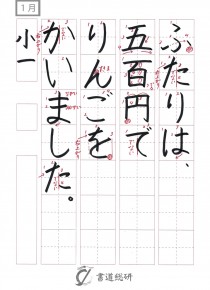 1月
ふたりは、
五百円で
りんごを
かいました。
小一
書道総研